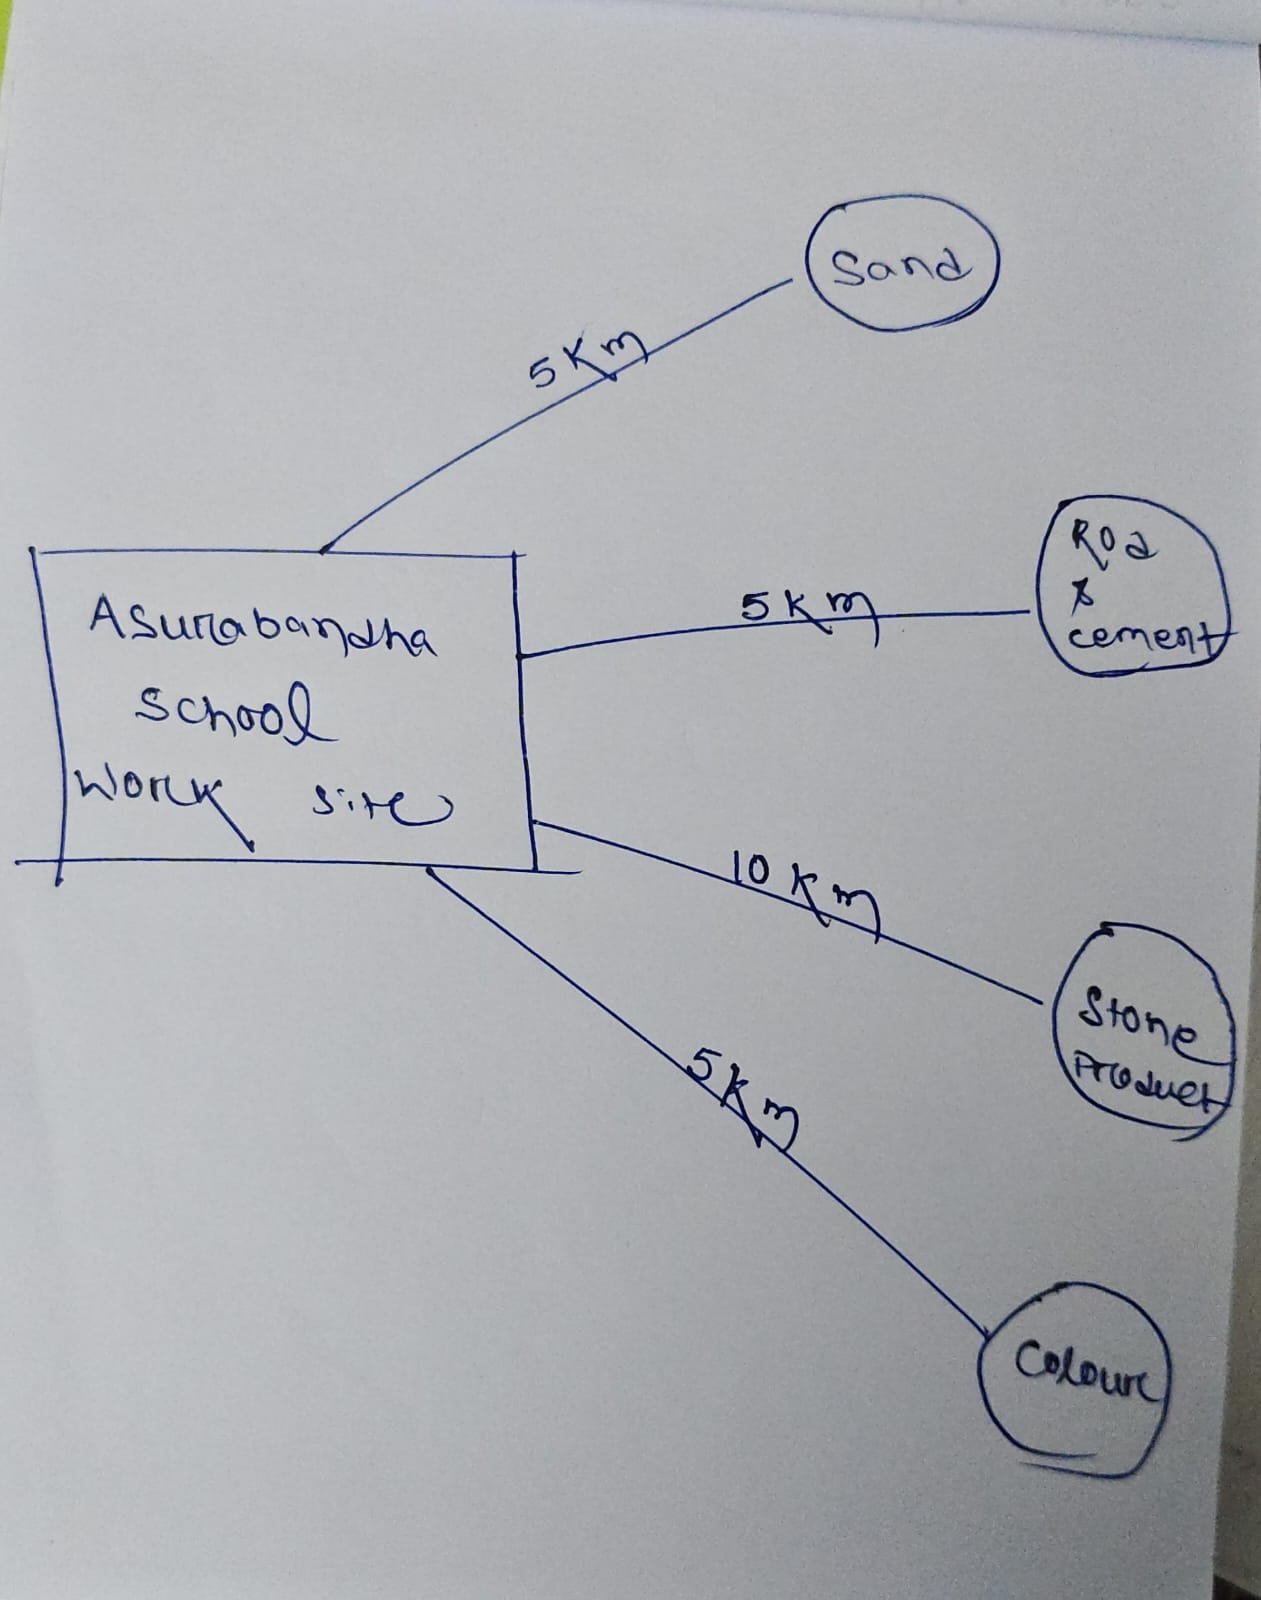 Sand
5 Km
Rod
&
cement
5 Km
Asurabandha
School
Work site
10 Km
Stone
Product
5 Km
Colour